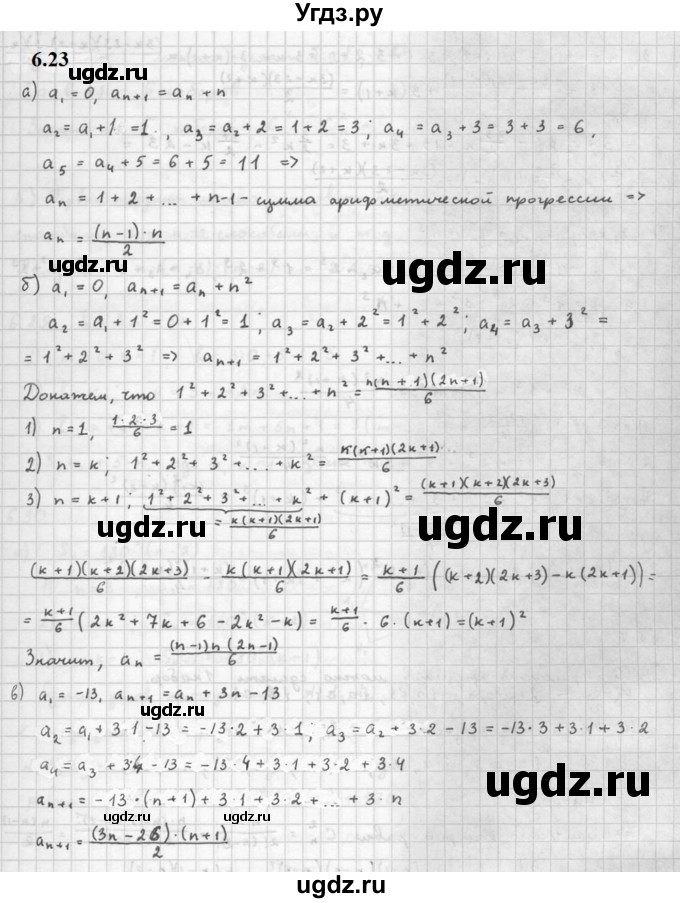 Угдз.ру
6.23
ugdz.ru
ugdz.ru
а) a₁ = 0, aₙ₊₁ = aₙ + n
a₂ = a₁ + 1 = 1, a₃ = a₂ + 2 = 1 + 2 = 3; a₄ = a₃ + 3 = 3 + 3 = 6,
a₅ = a₄ + 5 = 6 + 5 = 11 =>
aₙ = 1 + 2 + ... + n-1 - сумма арифметической прогрессии =>
aₙ = (n-1)·n/2
ugdz.ru
ugdz.ru
б) a₁ = 0, aₙ₊₁ = aₙ + n²
a₂ = a₁ + 1² = 0 + 1² = 1; a₃ = a₂ + 2² = 1² + 2²; a₄ = a₃ + 3² =
= 1² + 2² + 3² => aₙ₊₁ = 1² + 2² + 3² + ... + n²
Докажем, что 1² + 2² + 3² + ... + n² = n(n+1)(2n+1)/6
1) n = 1, 1·2·3/6 = 1
ugdz.ru
2) n = k; 1² + 2² + 3² + ... + k² = k(k+1)(2k+1)/6
3) n = k+1; 1² + 2² + 3² + ... + k² + (k+1)² = (k+1)(k+2)(2k+3)/6
= k(k+1)(2k+1)/6
ugdz.ru
ugdz.ru
(k+1)(k+2)(2k+3)/6 - k(k+1)(2k+1)/6 = k+1/6 ((k+2)(2k+3) - k(2k+1)) =
= k+1/6 (2k² + 7k + 6 - 2k² - k) = k+1/6 · 6 · (k+1) = (k+1)²
Значит, aₙ = (n-1)n(2n-1)/6
ugdz.ru
в) a₁ = -13, aₙ₊₁ = aₙ + 3n - 13
ugdz.ru
a₂ = a₁ + 3·1 - 13 = -13·2 + 3·1; a₃ = a₂ + 3·2 - 13 = -13·3 + 3·1 + 3·2
a₄ = a₃ + 3·4 - 13 = -13·4 + 3·1 + 3·2 + 3·4
ugdz.ru
aₙ₊₁ = -13·(n+1) + 3·1 + 3·2 + ... + 3·n
aₙ₊₁ = (3n-26)·(n+1)/2
ugdz.ru
ugdz.ru
ugdz.ru